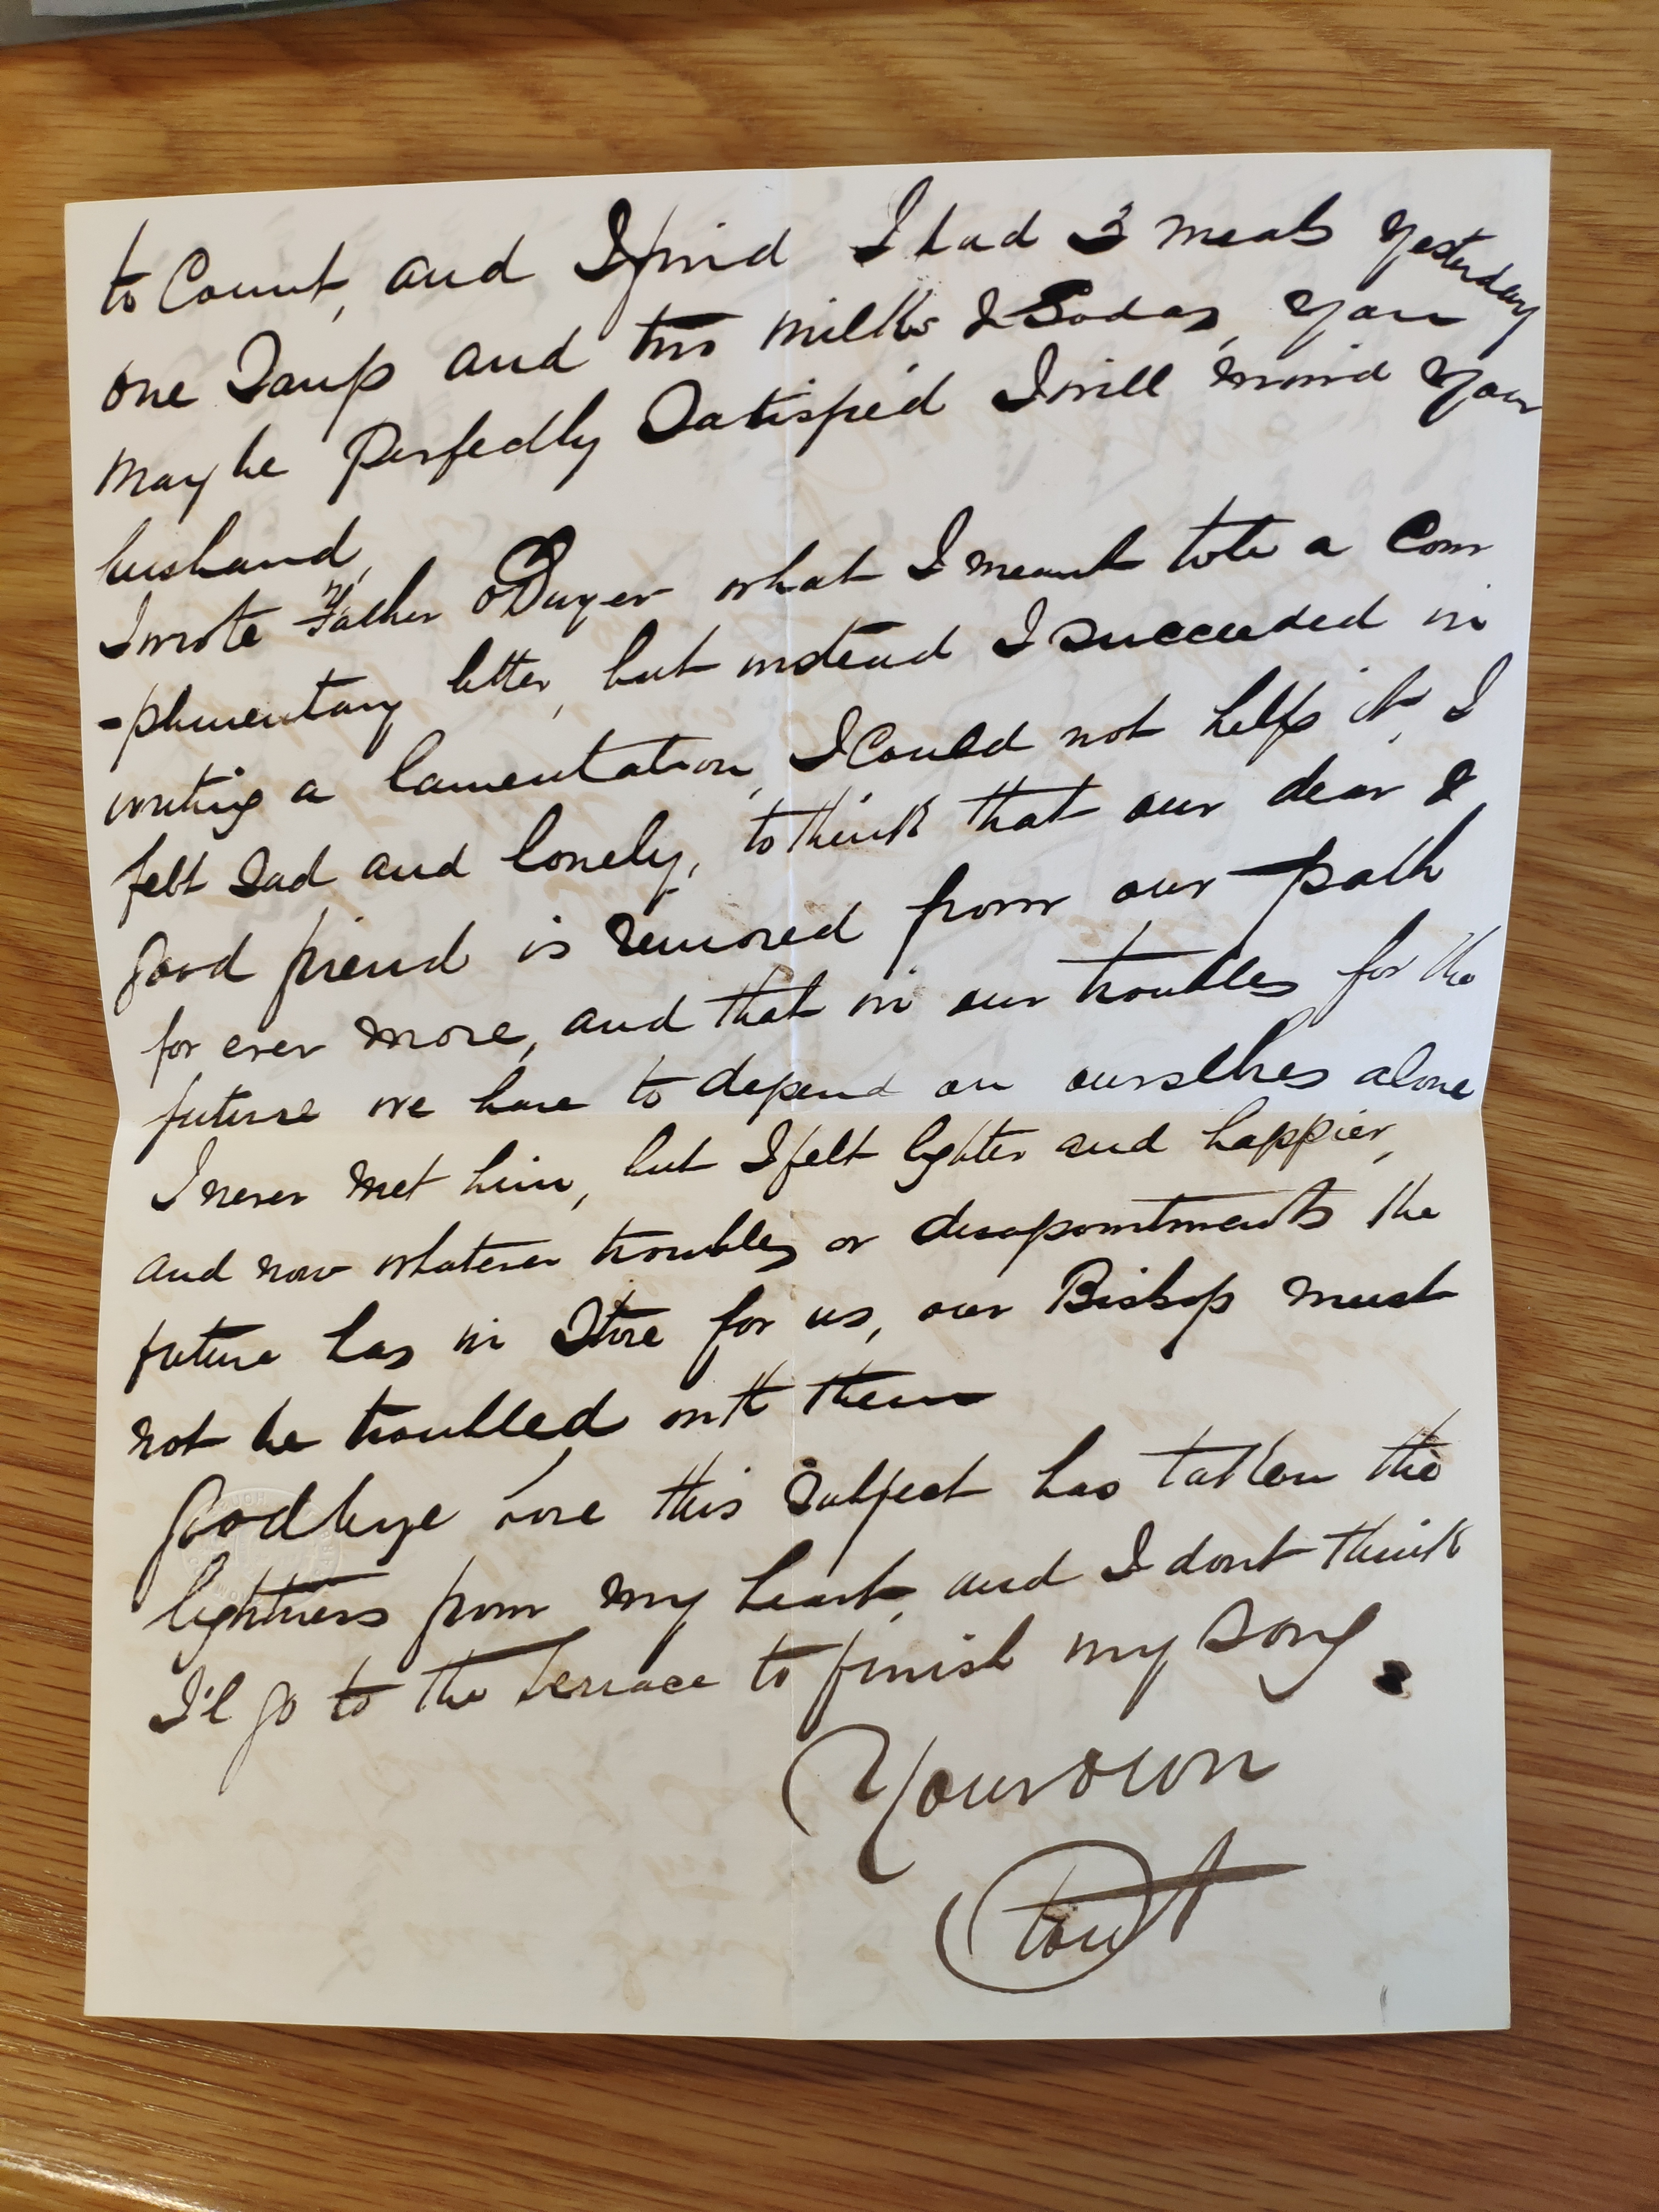 to Count, and I find I had 3 meals yesterday
one Soup and two milks & Sodas, you
may be perfectly Satisfied I will mind your
husband,
I wrote Father O'Dwyer what I meant to be a Com
-plimentary letter, but instead I succeeded in
writing a lamentation, I Could not help it, I
felt sad and lonely, to think that our dear &
good friend is removed from our path
for ever more, and that in our troubles for the
future we have to depend on ourselves alone
I never met him, but I felt lighter and happier,
and now whatever troubles or disapointments the
future has in Store for us, our Bishop must
not be troubled with them
Goodbye love this subject has taken the
lightness from my heart, and I dont think
I'l go to the terrace to finish my Song.
Your own